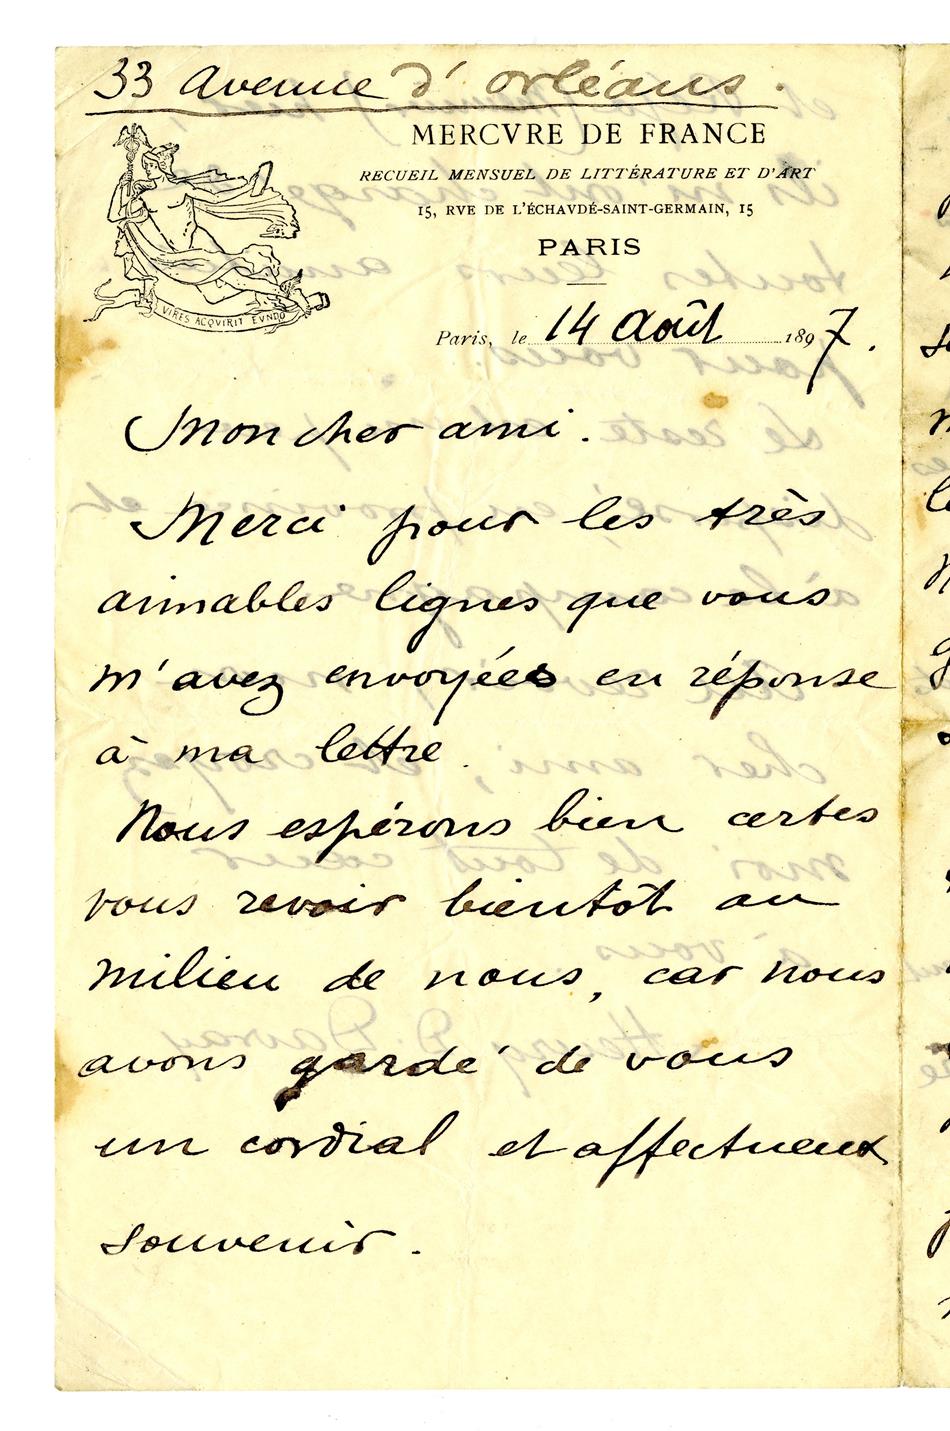 33 Avenue d'Orléans.
MERCVRE DE FRANCE
RECUEIL MENSUEL DE LITTÉRATURE ET D'ART
15, RVE DE L'ÉCHAVDÉ-SAINT-GERMAIN, 15
PARIS
VIRES ACQVIRIT EVNDO
Paris, le 14 Août 1897.
Mon cher ami.
Merci pour les très
aimables lignes que vous
m'avez envoyées en réponse
à ma lettre.
Nous espérons bien certes
vous revoir bientôt au
milieu de nous, car nous
avons gardé de vous
un cordial et affectueux
souvenir.